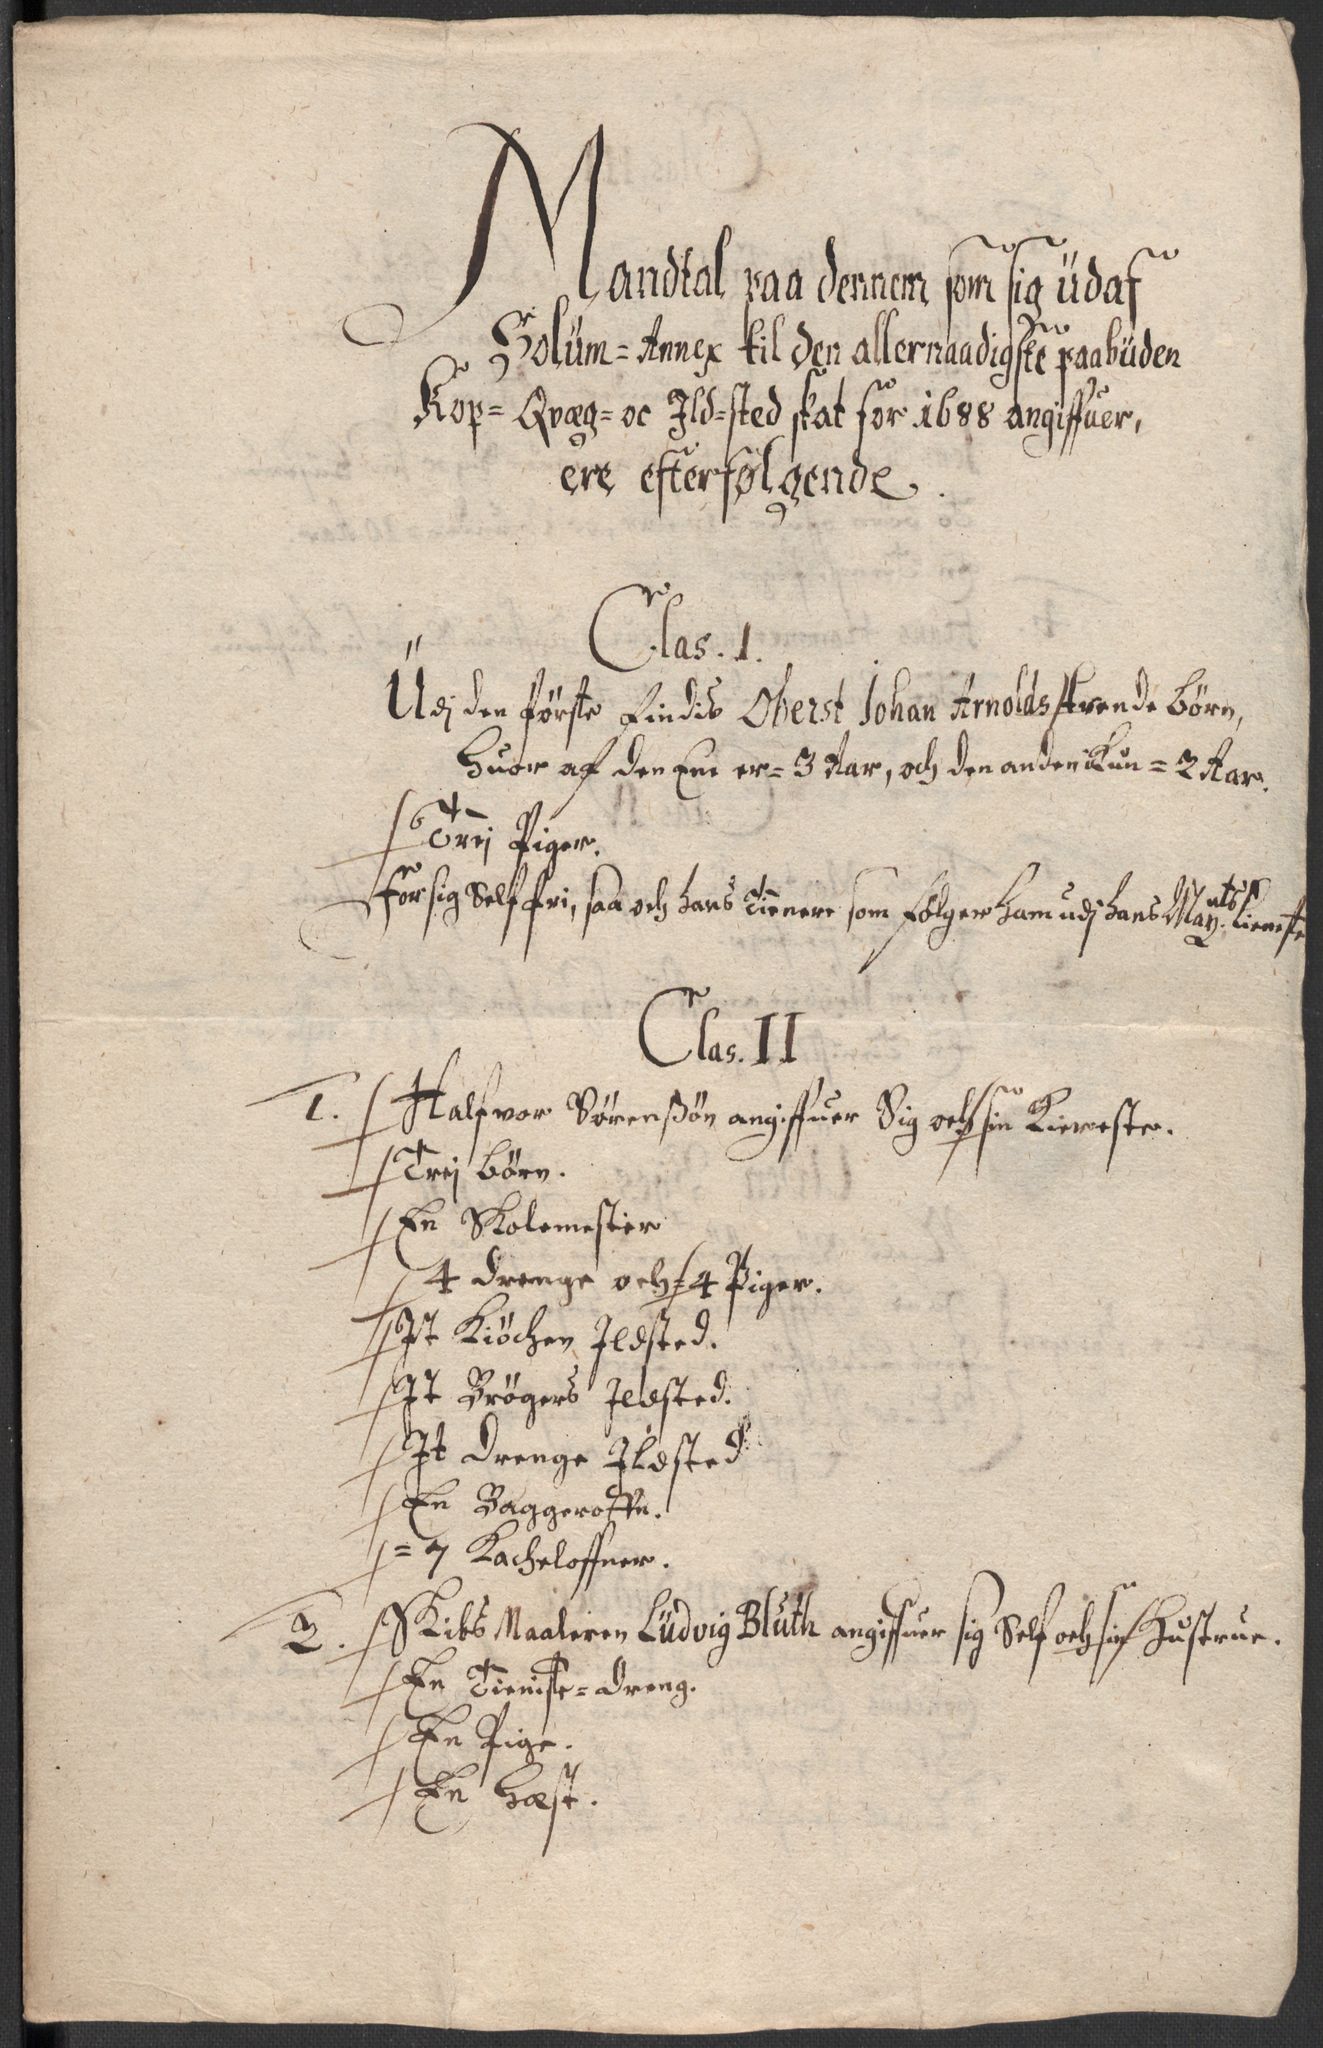 Mandtal paa dennem som sig üdaf
Solüm = Annex til den allernaadigste paabüden
Kop = Qvæg = oc Ild = sted skat for 1688 angiffuer,
ere efterfølgende.
Clas. 1.
Üdj den første findis Oberst Johan Arnolds tvende børn,
huor af den Ene er = 3 Aar, och den anden Kun = 2 Aar.
Trej Piger.
For sig Self fri, saa och hans Tienere som følger ham udj hans May.ts tieniste
Clas. II
1. Halfvor Sørenßøn angiffuer Sig och sin Kiereste.
Trej børn.
En Skolemester
4 drenge och = 4 Piger.
It Kiöchen Ildsted.
It Brögers Ildsted.
It drenge Ildsted
En Baggeroffn.
= 7 Kacheloffner.
2. Skibs Maaleren Lüdvig Blüth angiffuer sig Self och sin Hustrue.
En Tieniste = dreng.
En Pige.
En hæst.